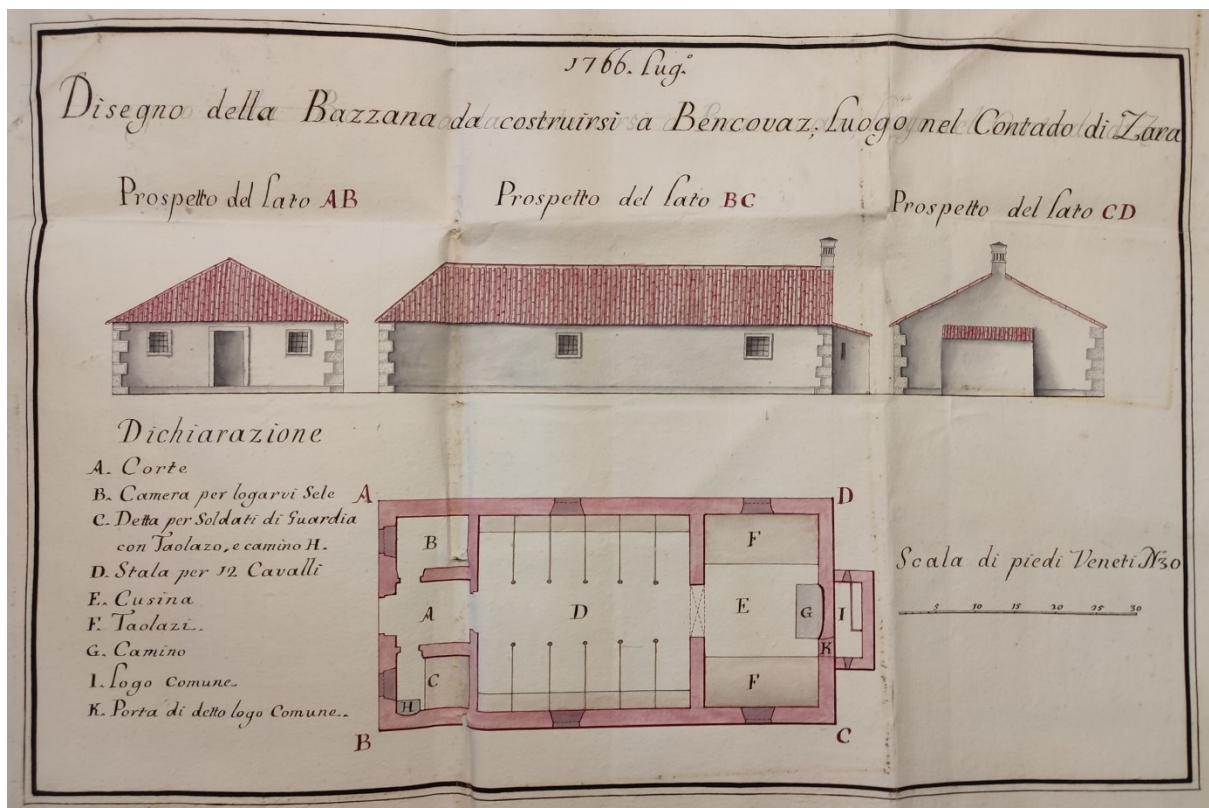 1766. Lug.º
Disegno della Bazzana da costruirsi a Bencovaz, Luogo nel Contado di Zara
Prospetto del lato AB
Prospetto del lato BC
Prospetto del lato CD
Dichiarazione
A. Corte
B. Camera per logarvi Sele
C. Detta per Soldati di Guardia
con Taolazo, e camino H.
D. Stala per 12 Cavalli
E. Cusina
F. Taolazi.
G. Camino
I. Logo comune
K. Porta di detto logo Comune..
A
D
B
F
A
D
E
G
I
K
C
F
H
B
C
Scala di piedi Veneti N30
5 10 15 20 25 30